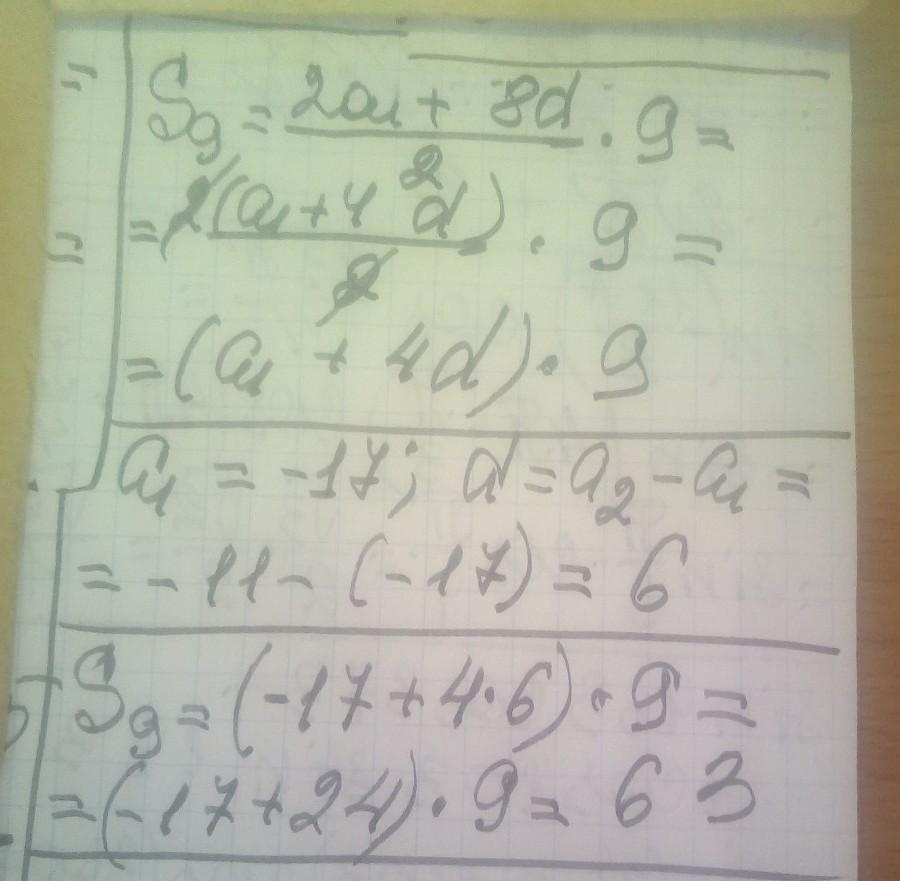 S₉ = (2a₁ + 8d)/2 · 9 =
= 2(a₁ + 4d)/2 · 9 =
= (a₁ + 4d) · 9
a₁ = -17; d = a₂ - a₁ =
= -11 - (-17) = 6
S₉ = (-17 + 4·6) · 9 =
= (-17 + 24) · 9 = 63